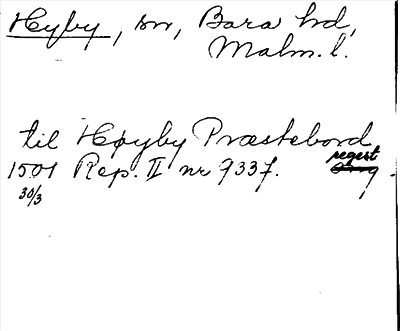 Heyby, sn, Bara hd,
Malm. l.
til Høyby Præstebord
regest
1501 Rep. II nr 9337. Orig
30/3